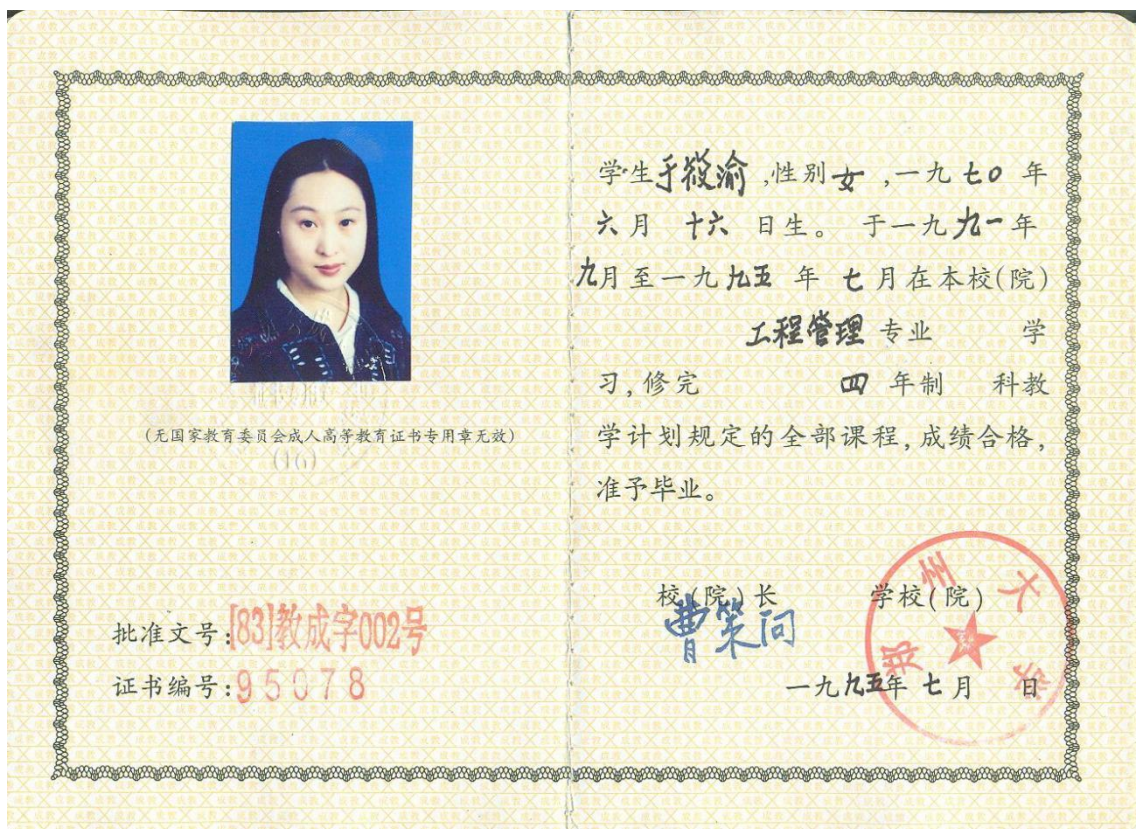 (无国家教育委员会成人高等教育证书专用章无效)
(16)
批准文号:[83]教成字002号
证书编号:95078
学生于筱渝,性别女,一九七〇年
六月 十六 日生。 于一九九一年
九月至一九九五 年 七月在本校(院)
工程管理 专业 学
习,修完 四 年制 科教
学计划规定的全部课程,成绩合格,
准予毕业。
校(院)长 学校(院)
曹策问
郑州大学
一九九五年 七月 日